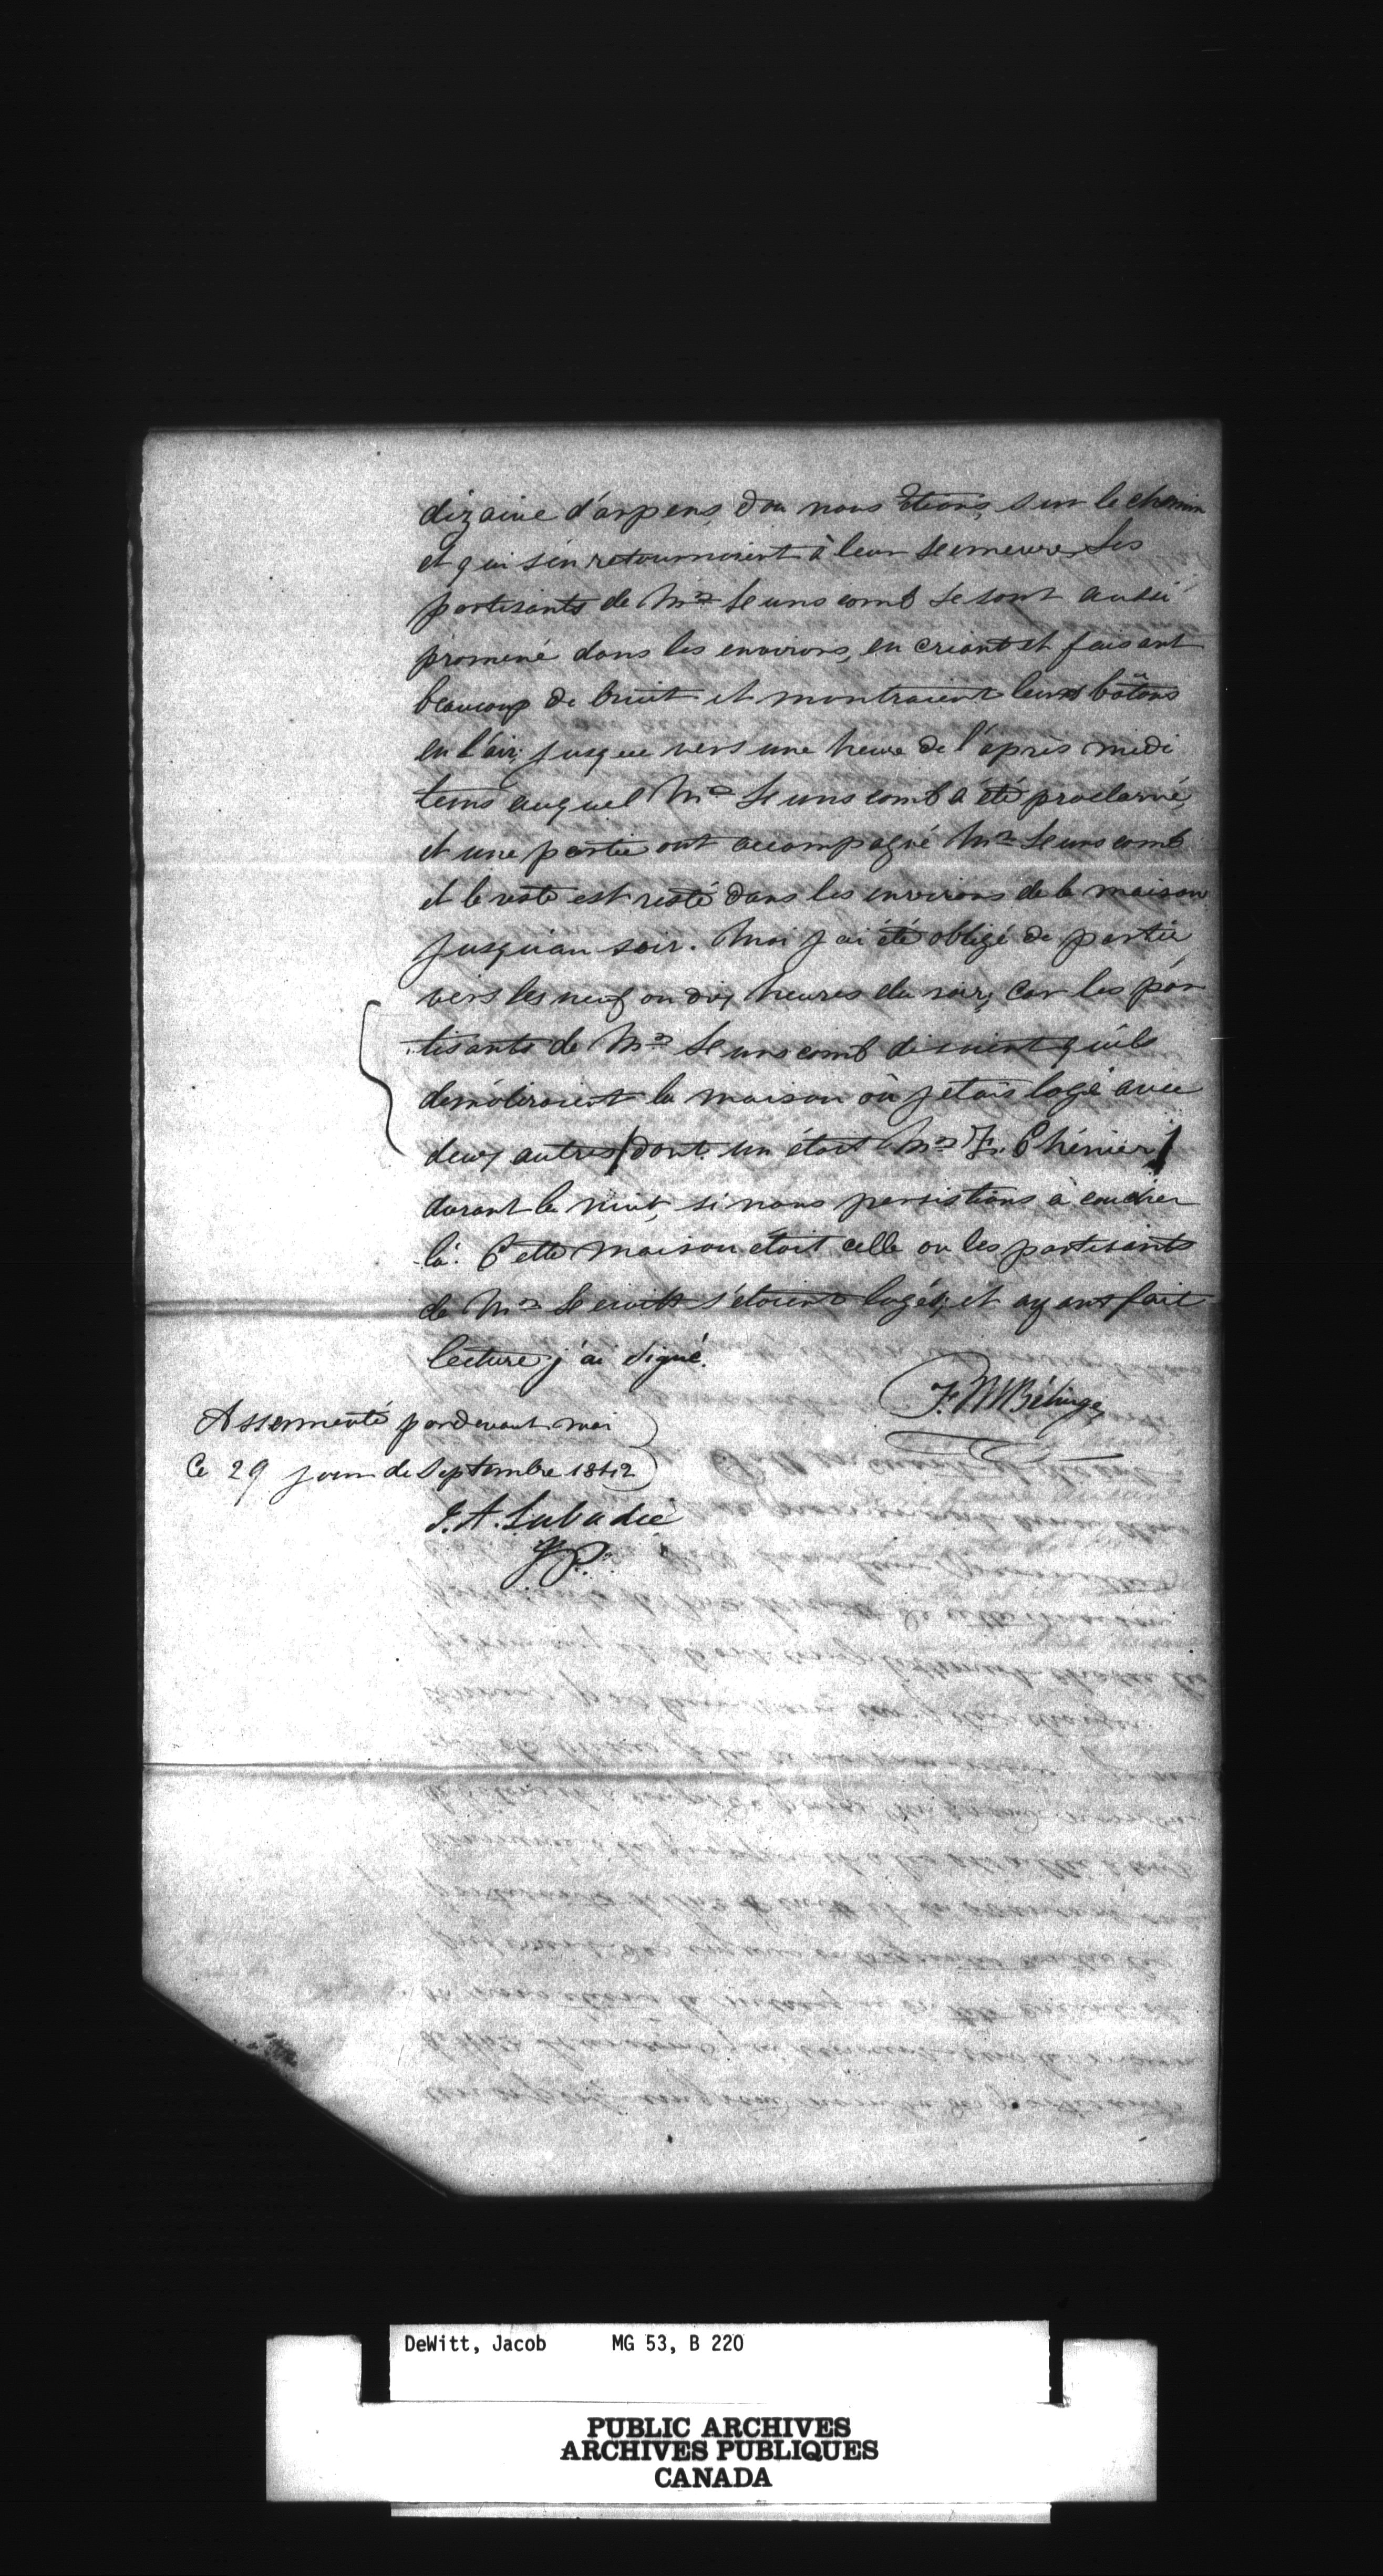 dizaine d'arpens, d'ou nous étions, sur le chemin
et qui s'en retournoient à leur demeure, Les
partisants de Mr Dunscomb se sont aussi
promené dans les environs, en criant et faisant
beaucoup de bruit et montraient leurs bâtons
en l'air, jusque vers une heure de l'après midi
tems auquel Mr Dunscomb a été proclamé,
et une partie ont accompagné Mr Dunscomb
et le reste est resté dans les environs de la maison
jusqu'au soir. Moi j'ai été obligé de partir,
vers les neuf ou dix heures du soir, car les par
tisants de Mr Dunscomb disoient qu'ils
démoliroient la maison où j'étais logé avec
deux autres (dont un étoit Mr F. Chénier)
durant la nuit, si nous persistions à coucher
là. Cette maison étoit celle ou les partisants
de Mr Dewitt s'étoient logés; et ayant fait
lecture j'ai signé.
Assermenté pardevant moi
Ce 29 jour de Septembre 1842
J. A. Labadie
JP.
DeWitt, Jacob MG 53, B 220
PUBLIC ARCHIVES
ARCHIVES PUBLIQUES
CANADA